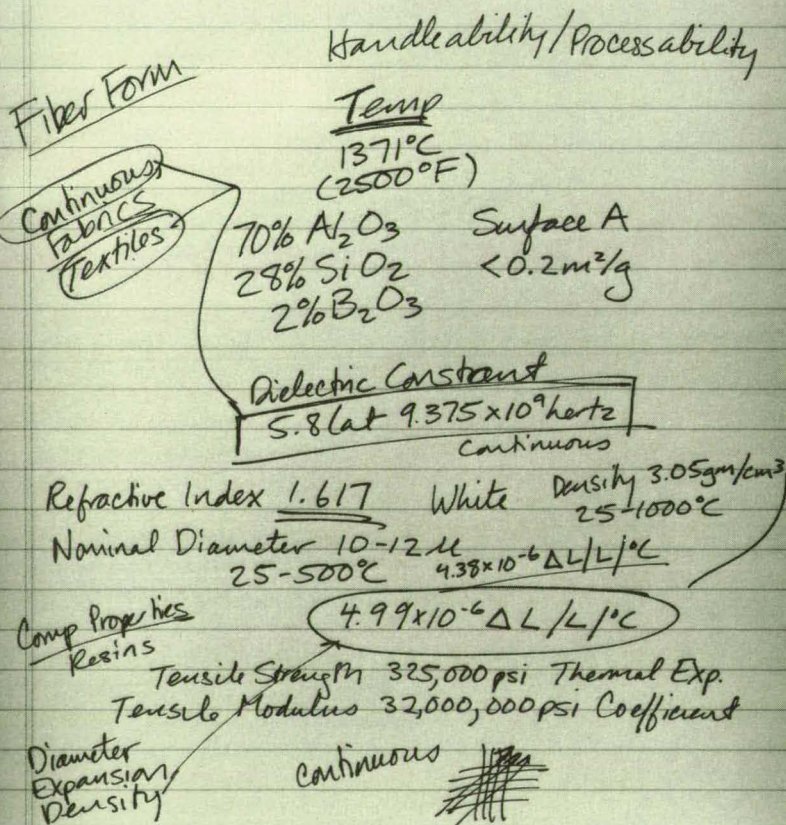 Handleability/Processability
Fiber Form
Temp
1371°C
(2500°F)
Continuous
Fabrics
Textiles
70% Al2O3
28% SiO2
2% B2O3
Surface A
<0.2m²/g
Dielectric Constant
5.8 at 9.375x10⁹ hertz
Continuous
Refractive Index 1.617 White Density 3.05gm/cm³
25-1000°C
Nominal Diameter 10-12 µ
25-500°C 4.38x10⁻⁶ ΔL/L/°C
4.99x10⁻⁶ ΔL/L/°C
Comp Properties
Resins
Tensile Strength 325,000 psi Thermal Exp.
Tensile Modulus 32,000,000 psi Coefficient
Diameter
Expansion
Density
Continuous